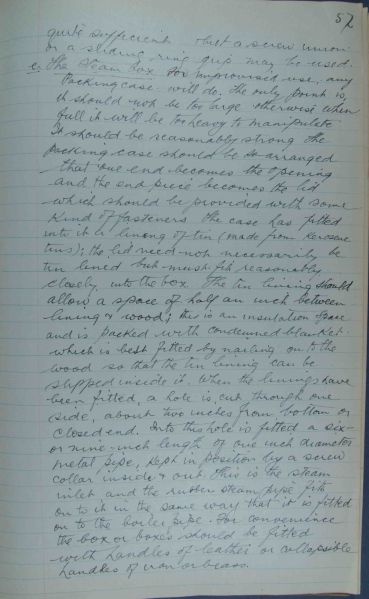 52
quite sufficient but a screw union
or a sliding ring grip may be used.
c. The Steam box. For improvised use, any
Packing case will do, the only point is,
it should not be too large otherwise when
full it will be too heavy to manipulate
It should be reasonably strong the
packing case should be so arranged
that one end becomes the opening
and the end piece becomes the lid
which should be provided with some
kind of fasteners the case has fitted
into it a lining of tin (made from Kerosene
tins); the lid need not necessarily be
tin lined but must fit reasonably
closely into the box. The tin lining should
allow a space of half an inch between
lining & wood; this is an insulation space
and is packed with condemned blanket
which is best fitted by nailing on to the
wood so that the tin lining can be
slipped inside it. When the linings have
been fitted, a hole is cut through one
side, about two inches from bottom or
closed end. Into this hole is fitted a six-
or nine-inch length of one inch diameter
metal pipe, kept in position by a screw
collar inside & out. This is the steam
inlet and the rubber steam pipe fits
on to it in the same way that it is fitted
on to the boiler pipe. For convenience
the box or boxes should be fitted
with handles of leather or collapsible
handles of iron or brass.